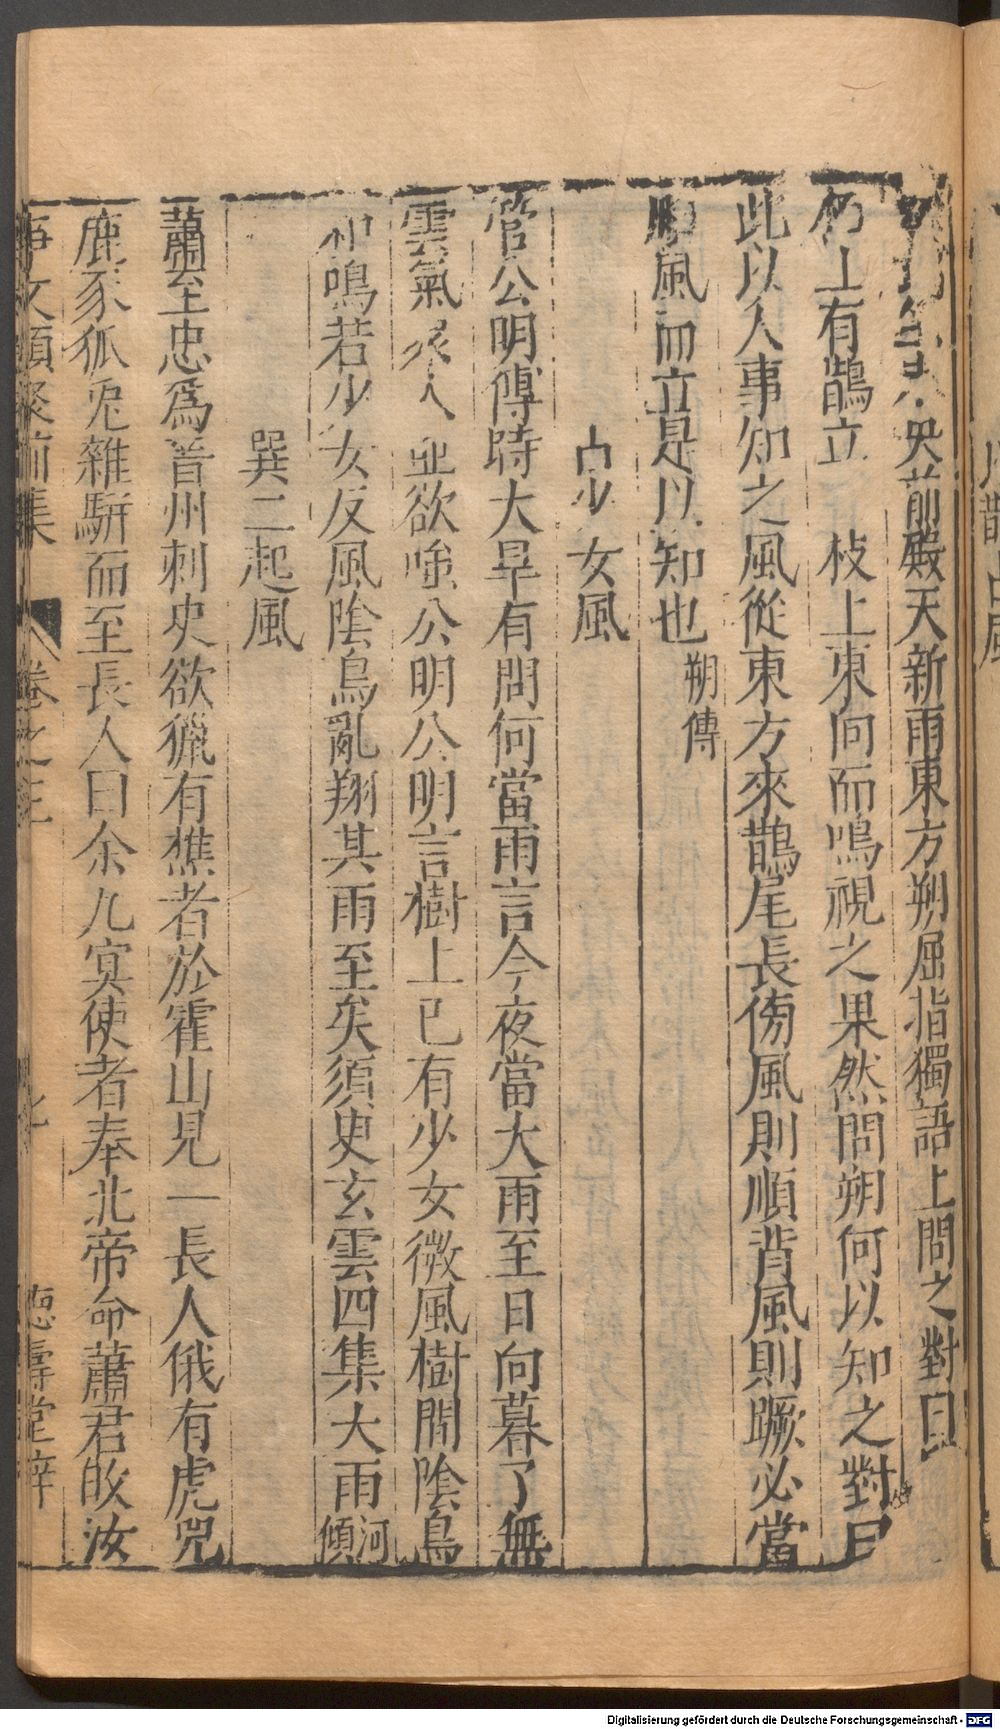 央前殿天新雨東方朔屈指獨語上問之對曰
朽上有鵲立枝上東向而鳴視之果然問朔何以知之對曰
此以人事知之風從東方來鵲尾長傍風則順背風則蹶必當
風而立是以知也朔傳
占少女風
管公明傅時大旱有問何當雨言今夜當大雨至日向暮了無
雲氣眾人並欲嗤公明公明言樹上已有少女微風樹間陰鳥
和鳴若少女反風陰鳥亂翔其雨至矣須史玄雲四集大雨河傾
巽二起風
蕭至忠爲晉州刺史欲獵有樵者於霍山見一長人俄有虎兕
鹿豕狐兎雜駢而至長人曰余九冥使者奉北帝命蕭君畋汝
事文類聚前集 卷之三 德壽堂梓
Digitalisierung gefördert durch die Deutsche Forschungsgemeinschaft - DFG